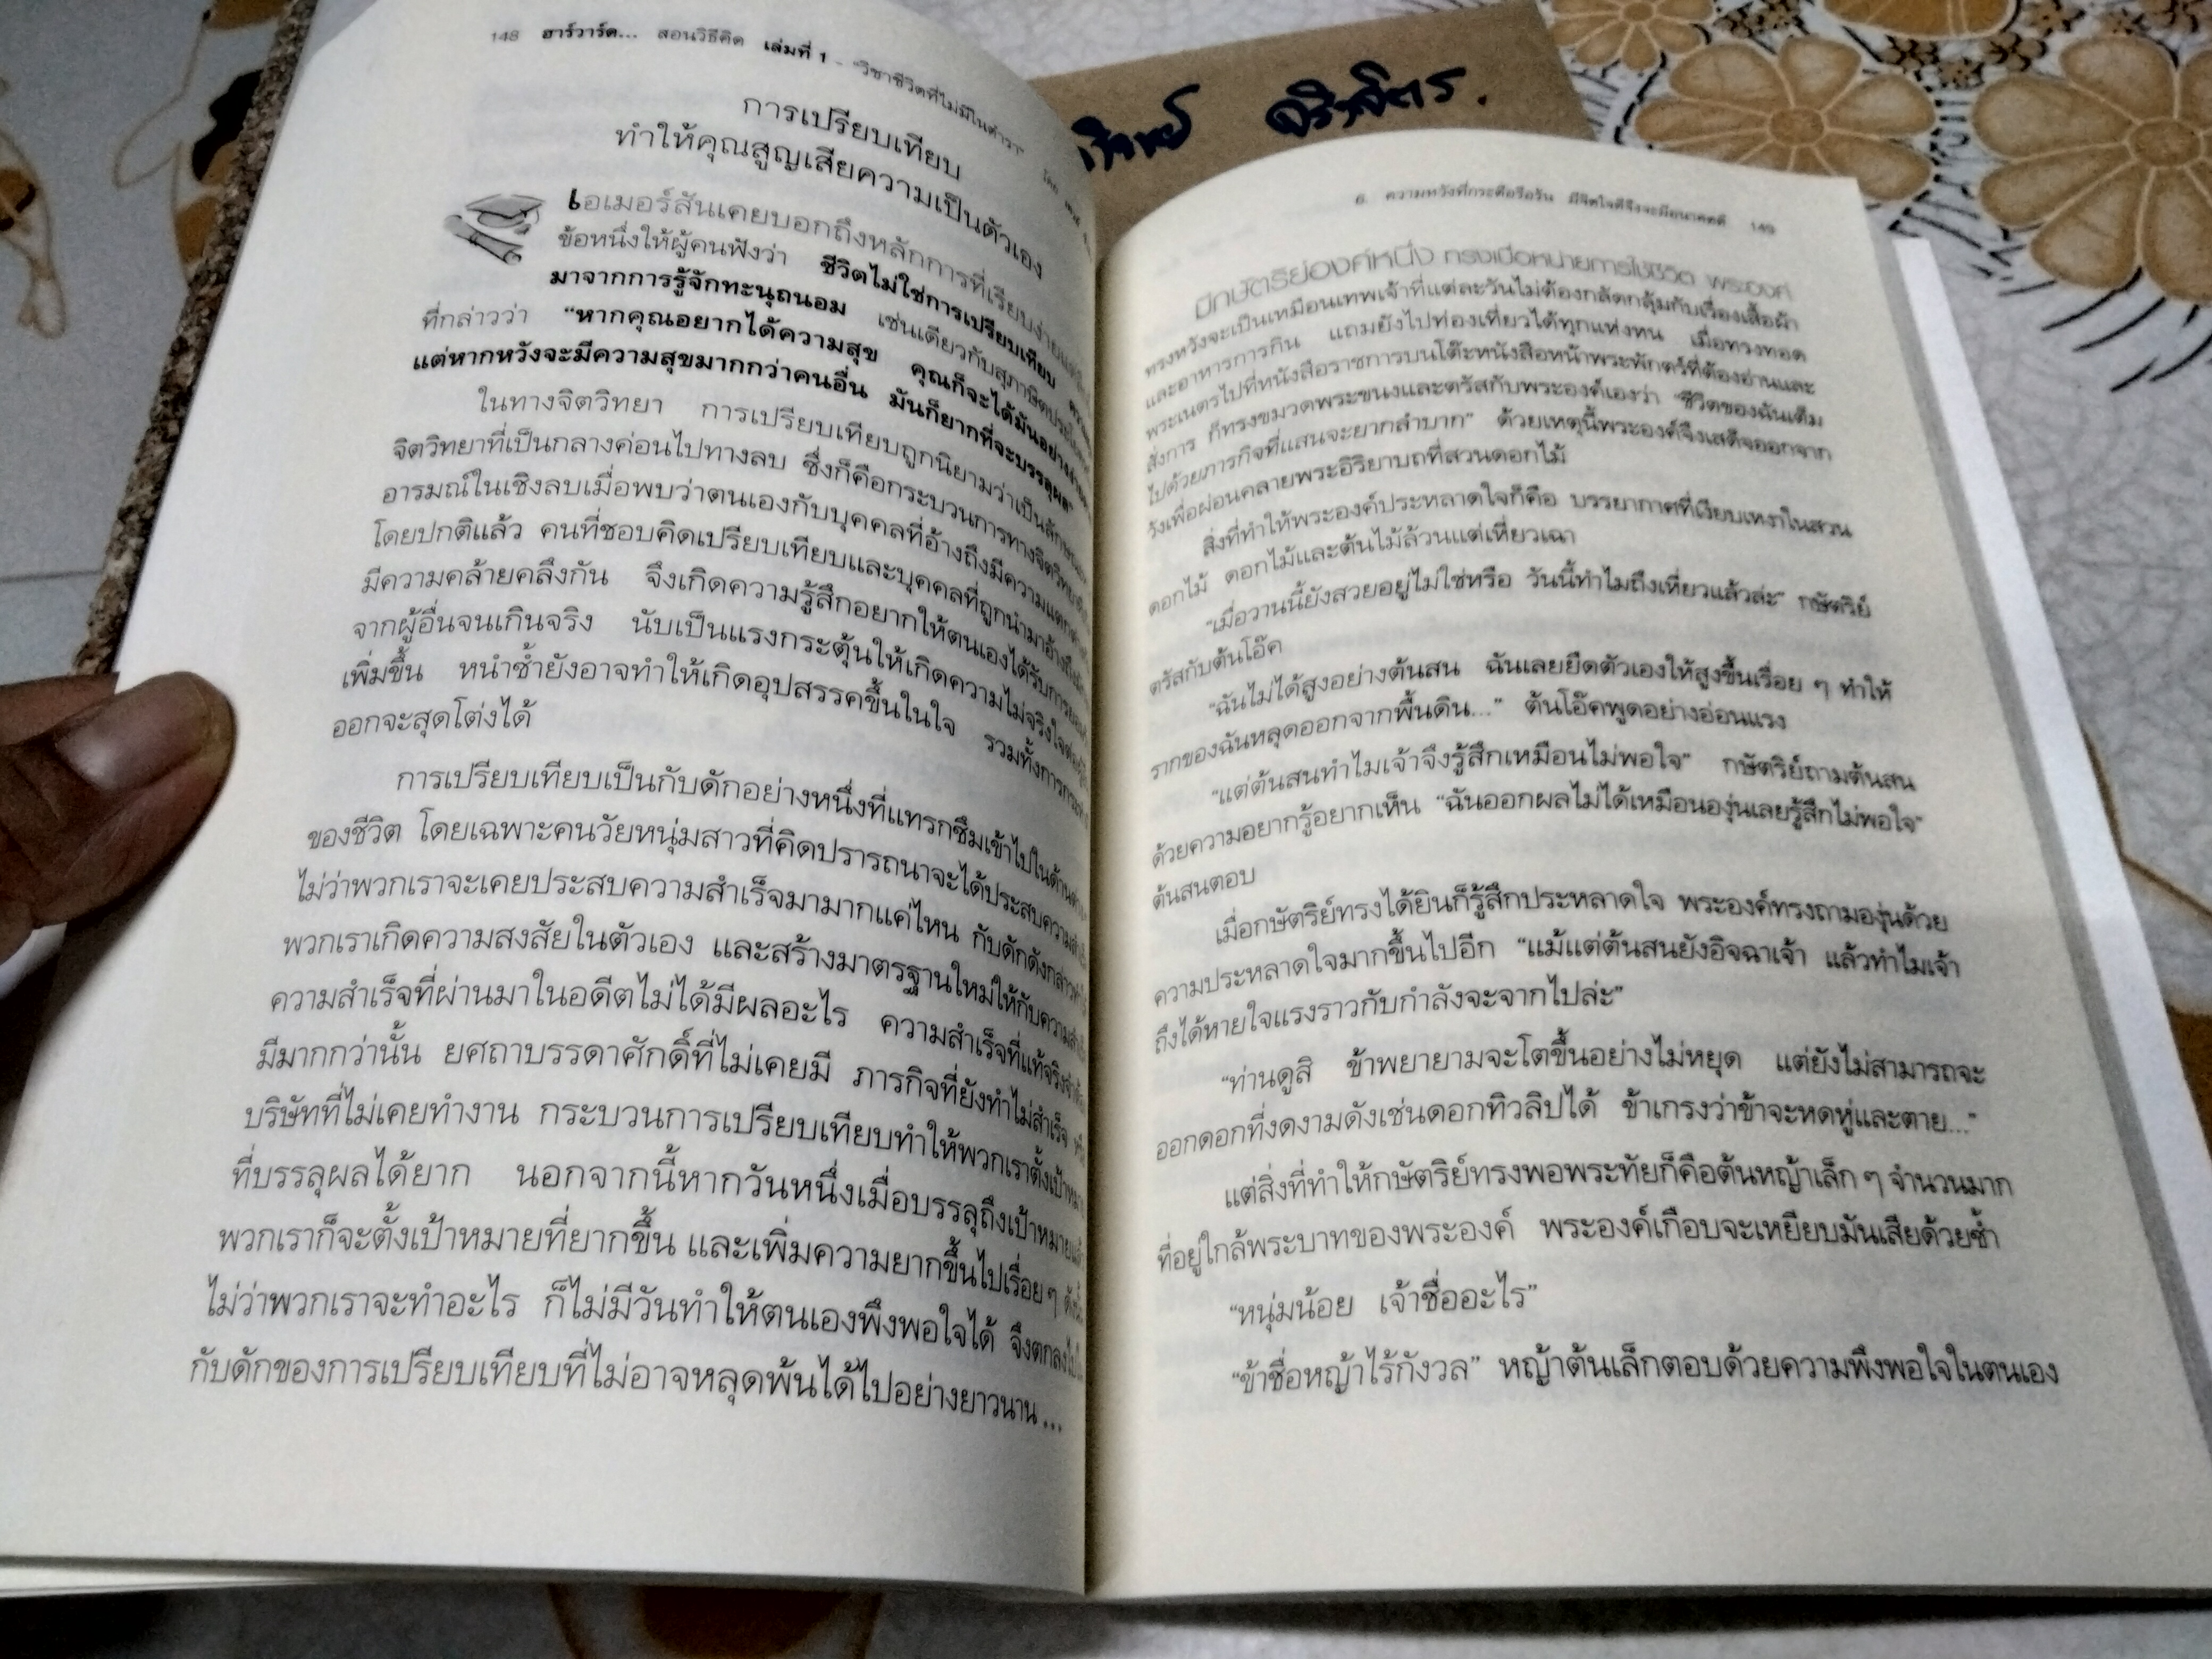 148 ฮาร์วาร์ด... สอนวิธีคิด เล่มที่ 1 - "วิชาชีวิตที่ไม่มีในตำรา"
การเปรียบเทียบ
ทำให้คุณสูญเสียความเป็นตัวเอง
เอเมอร์สันเคยบอกถึงหลักการที่เรียบง่าย
ข้อหนึ่งให้ผู้คนฟังว่า ชีวิตไม่ใช่การเปรียบเทียบ
มาจากการรู้จักทะนุถนอม เช่นเดียวกับสุภาษิต
ที่กล่าวว่า "หากคุณอยากได้ความสุข คุณก็จะได้มันอย่างง่าย
แต่หากหวังจะมีความสุขมากกว่าคนอื่น มันก็ยากที่จะบรรลุผล"
ในทางจิตวิทยา การเปรียบเทียบถูกนิยามว่าเป็น
จิตวิทยาที่เป็นกลางค่อนไปทางลบ ซึ่งก็คือกระบวนการทางจิตวิทยา
อารมณ์ในเชิงลบเมื่อพบว่าตนเองกับบุคคลที่อ้างถึงมีความแตกต่าง
โดยปกติแล้ว คนที่ชอบคิดเปรียบเทียบและบุคคลที่ถูกนำมาอ้างถึง
มีความคล้ายคลึงกัน จึงเกิดความรู้สึกอยากให้ตนเองได้รับการ
จากผู้อื่นจนเกินจริง นับเป็นแรงกระตุ้นให้เกิดความไม่จริงใจต่อ
เพิ่มขึ้น หนำซ้ำยังอาจทำให้เกิดอุปสรรคขึ้นในใจ รวมทั้งการ
ออกจะสุดโต่งได้
การเปรียบเทียบเป็นกับดักอย่างหนึ่งที่แทรกซึมเข้าไปในด้าน
ของชีวิต โดยเฉพาะคนวัยหนุ่มสาวที่คิดปรารถนาจะได้ประสบความ
ไม่ว่าพวกเราจะเคยประสบความสำเร็จมามากแค่ไหน กับดักดังกล่าว
พวกเราเกิดความสงสัยในตัวเอง และสร้างมาตรฐานใหม่ให้กับความ
ความสำเร็จที่ผ่านมาในอดีตไม่ได้มีผลอะไร ความสำเร็จที่แท้จริง
มีมากกว่านั้น ยศถาบรรดาศักดิ์ที่ไม่เคยมี ภารกิจที่ยังทำไม่สำเร็จ
บริษัทที่ไม่เคยทำงาน กระบวนการเปรียบเทียบทำให้พวกเราตั้งเป้าหมาย
ที่บรรลุผลได้ยาก นอกจากนี้หากวันหนึ่งเมื่อบรรลุถึงเป้าหมาย
พวกเราก็จะตั้งเป้าหมายที่ยากขึ้น และเพิ่มความยากขึ้นไปเรื่อย ๆ
ไม่ว่าพวกเราจะทำอะไร ก็ไม่มีวันทำให้ตนเองพึงพอใจได้ จึงตกลง
กับดักของการเปรียบเทียบที่ไม่อาจหลุดพ้นได้ไปอย่างยาวนาน...
6. ความหวังที่กระตือรือร้น มีจิตใจดีจึงจะมีอนาคตดี 149
มีกษัตริย์องค์หนึ่ง ทรงเบื่อหน่ายการใช้ชีวิต พระองค์
ทรงหวังจะเป็นเหมือนเทพเจ้าที่แต่ละวันไม่ต้องกลัดกลุ้มกับเรื่องเสื้อผ้า
และอาหารการกิน แถมยังไปท่องเที่ยวได้ทุกแห่งหน เมื่อทรงทอด
พระเนตรไปที่หนังสือราชการบนโต๊ะหนังสือหน้าพระพักตร์ที่ต้องอ่านและ
สั่งการ ก็ทรงขมวดพระขนงและตรัสกับพระองค์เองว่า "ชีวิตของฉันเต็ม
ไปด้วยภารกิจที่แสนจะยากลำบาก" ด้วยเหตุนี้พระองค์จึงเสด็จออกจาก
วังเพื่อผ่อนคลายพระอิริยาบถที่สวนดอกไม้
สิ่งที่ทำให้พระองค์ประหลาดใจก็คือ บรรยากาศที่เงียบเหงาในสวน
ดอกไม้ ดอกไม้และต้นไม้ล้วนแต่เหี่ยวเฉา
"เมื่อวานนี้ยังสวยอยู่ไม่ใช่หรือ วันนี้ทำไมถึงเหี่ยวแล้วล่ะ" กษัตริย์
ตรัสกับต้นโอ๊ค
"ฉันไม่ได้สูงอย่างต้นสน ฉันเลยยืดตัวเองให้สูงขึ้นเรื่อย ๆ ทำให้
รากของฉันหลุดออกจากพื้นดิน..." ต้นโอ๊คพูดอย่างอ่อนแรง
"แต่ต้นสนทำไมเจ้าจึงรู้สึกเหมือนไม่พอใจ" กษัตริย์ถามต้นสน
ด้วยความอยากรู้อยากเห็น "ฉันออกผลไม่ได้เหมือนองุ่นเลยรู้สึกไม่พอใจ"
ต้นสนตอบ
เมื่อกษัตริย์ทรงได้ยินก็รู้สึกประหลาดใจ พระองค์ทรงถามองุ่นด้วย
ความประหลาดใจมากขึ้นไปอีก "แม้แต่ต้นสนยังอิจฉาเจ้า แล้วทำไมเจ้า
ถึงได้หายใจแรงราวกับกำลังจะจากไปล่ะ"
"ท่านดูสิ ข้าพยายามจะโตขึ้นอย่างไม่หยุด แต่ยังไม่สามารถจะ
ออกดอกที่งดงามดังเช่นดอกทิวลิปได้ ข้าเกรงว่าข้าจะหดหู่และตาย..."
แต่สิ่งที่ทำให้กษัตริย์ทรงพอพระทัยก็คือต้นหญ้าเล็ก ๆ จำนวนมาก
ที่อยู่ใกล้พระบาทของพระองค์ พระองค์เกือบจะเหยียบมันเสียด้วยซ้ำ
"หนุ่มน้อย เจ้าชื่ออะไร"
"ข้าชื่อหญ้าไร้กังวล" หญ้าต้นเล็กตอบด้วยความพึงพอใจในตนเอง